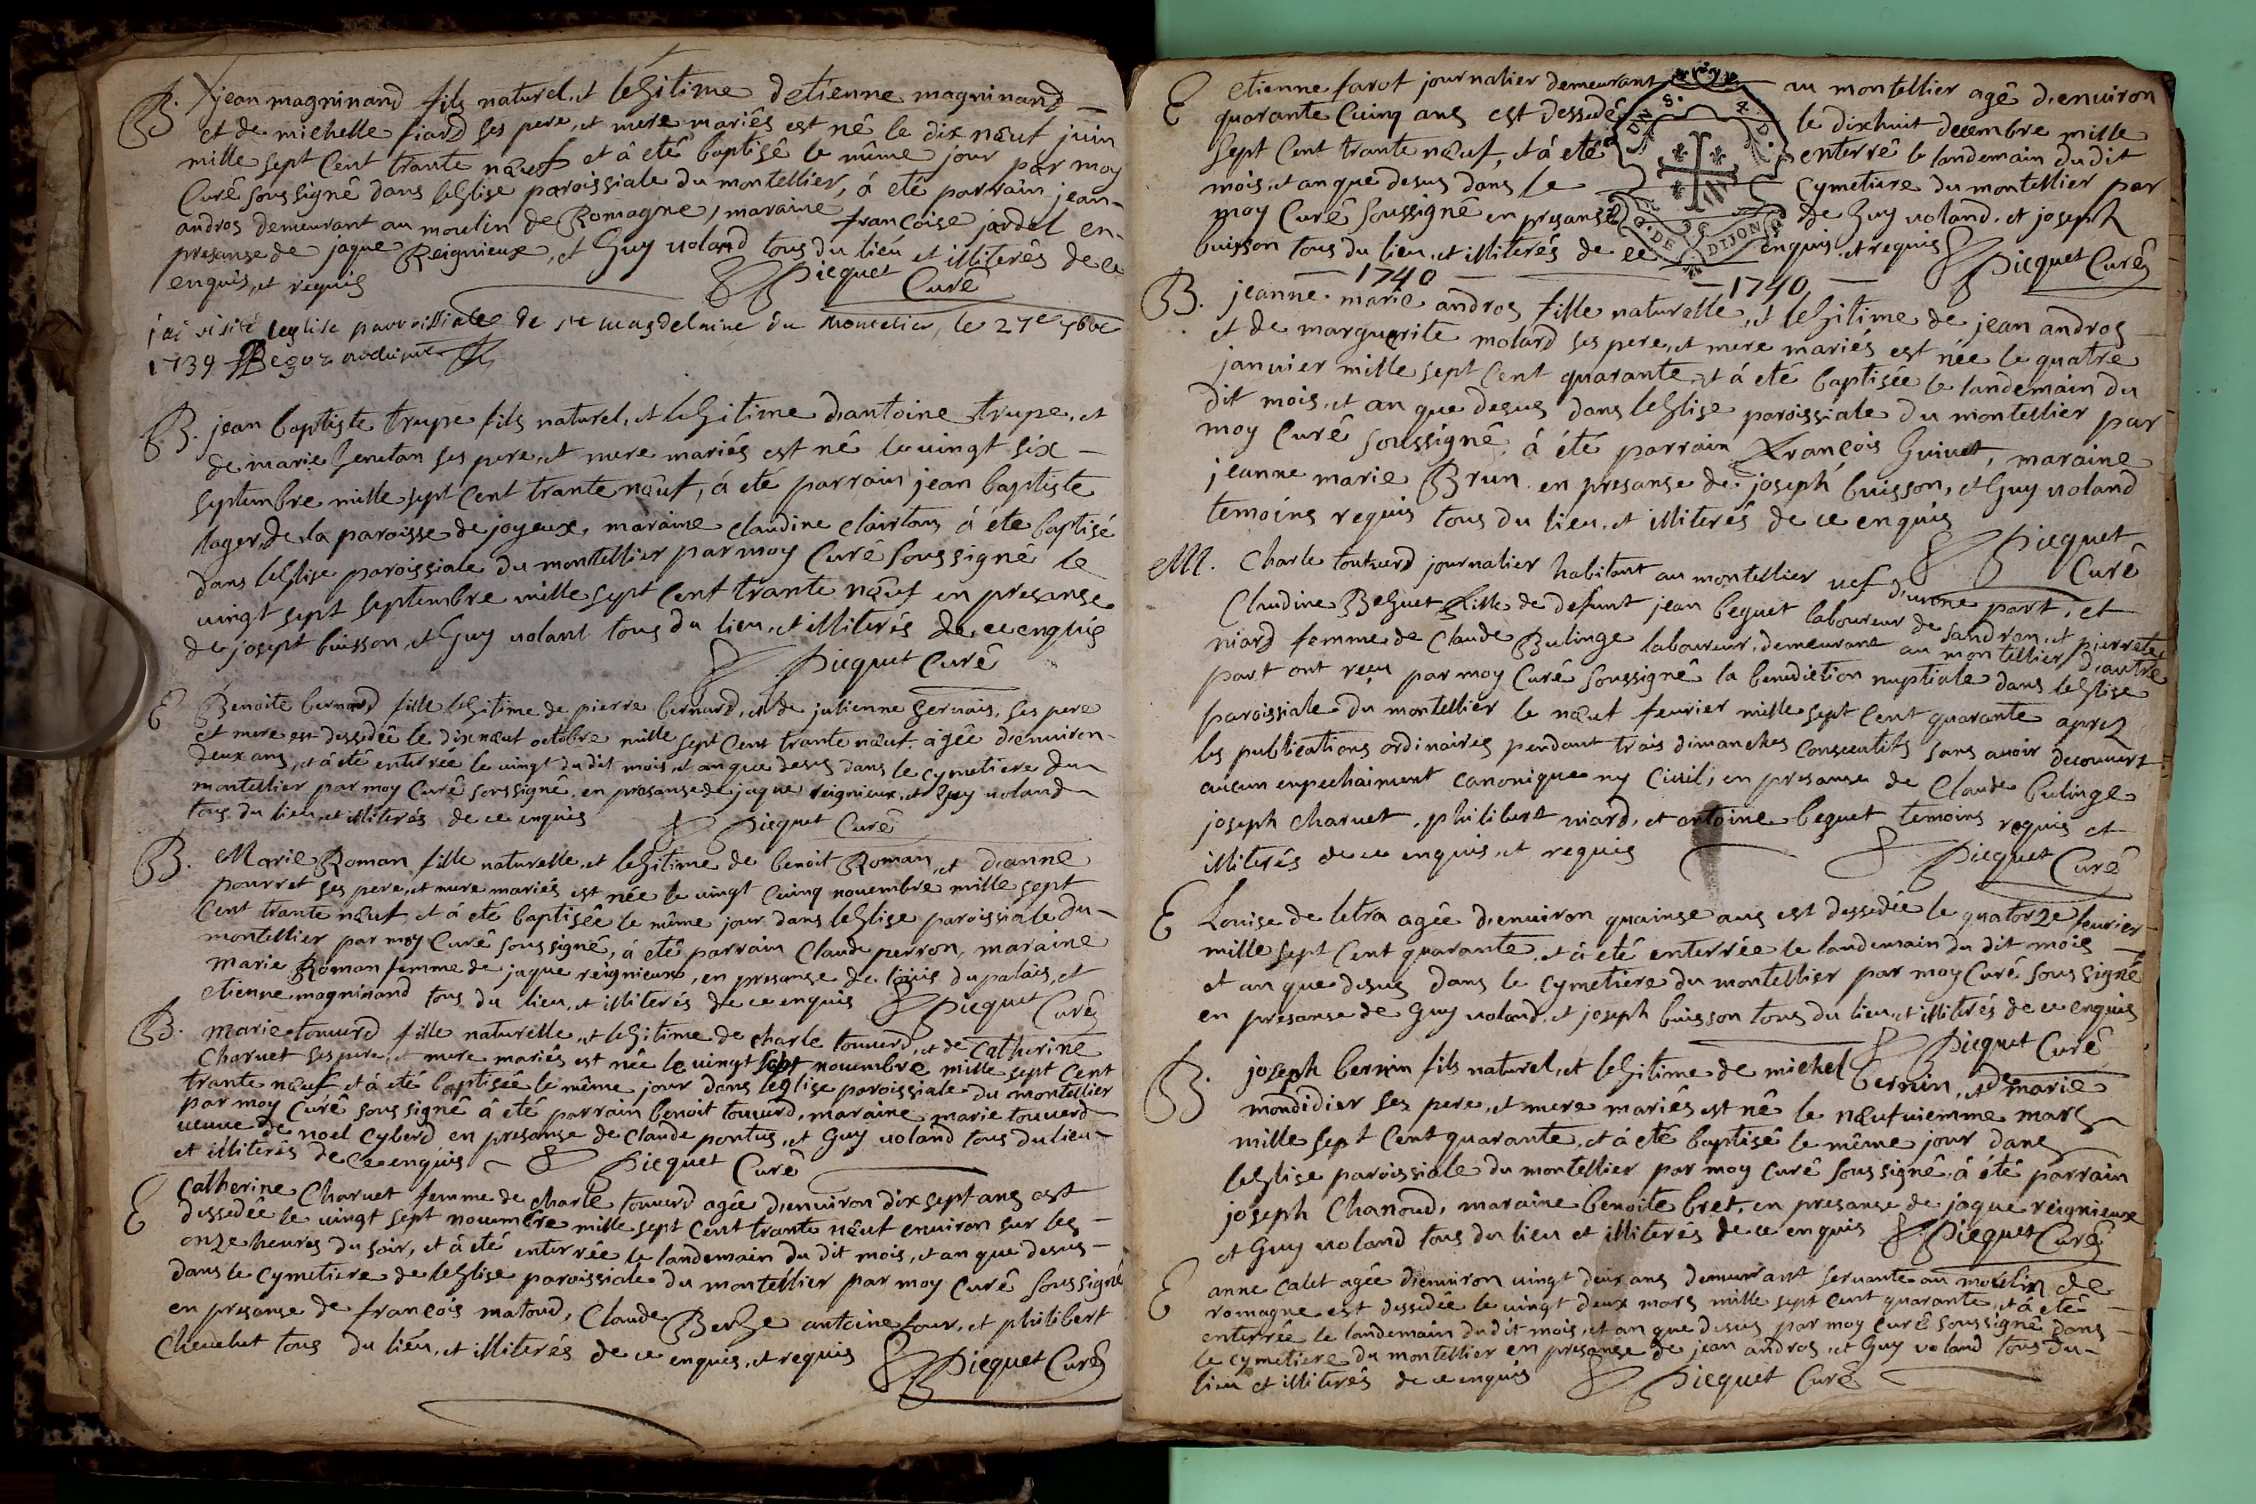 B. jean magninand fils naturel, et leGitime detienne magninand
et de michelle fiard ses pere, et mere mariés est né le dix nœuf juin
mille sept Cent trante nœuf et à eté baptisé le même jour par moy
Curé soussigné dans leGlise paroissiale du montellier, à eté parrain jean
andros demeurant au moulin de Romagne, maraine françoise jardel en
presanse de jaque Reignieux, et Guy voland tous du lieu et illiterés de ce
enquis, et requis Picquet Curé
j'ai visité leglise parroissiale de ste magdelaine du Montelier, le 27e 7bre
1739
B. jean baptiste trupe fils naturel, et leGitime d'antoine trupe, et
de marie Genetan ses pere, et mere mariés est né le vingt six
septembre mille sept Cent trante nœuf, à eté parrain jean baptiste
lager, de la paroisse de joyeux, maraine claudine clairtans à ete baptisé
dans leGlise paroissiale du montellier par moy Curé soussigné le
vingt sept septembre mille sept Cent trante nœuf en presanse
de josept buisson, et Guy volant tous du lieu, et illiterés de ce enquis
Picquet Curé
E Benoite bernard fille leGitime de pierre bernard, et de julienne Gervais, ses pere
et mere est dessedée le dix nœuf octobre mille sept Cent trante nœuf agée d'environ
deux ans, et à été enterrée le vingt du dit mois, et an que desus dans le cymetiere du
montellier par moy Curé soussigné, en presanse de jaque reignieux, et Guy voland
tous du lieu, et illiterés de ce enquis Picquet Curé
B. Marie Roman fille naturelle, et leGitime de benoit Roman, et d'anne
pourret ses pere, et mere mariés est née le vingt Cuinq novembre mille sept
Cent trante nœuf et à eté baptisée le même jour dans leGlise paroissiale du
montellier par moy Curé soussigné, à eté parrain Claude perron, maraine
marie Roman femme de jaque reignieux, en presanse de loüis du palais, et
etienne magninand tous du lieu, et illiterés de ce enquis Picquet Curé
B. Marie touuerd fille naturelle, et leGitime de charle touuerd, et de Catherine
Charuet ses pere, et mere mariés est née le vingt sept novembre mille sept Cent
trante nœuf et à eté baptisée le même jour dans leglise paroissiale du montellier
par moy Curé soussigné à eté parrain benoit touuerd, maraine marie touuerd
veuve de noel cyberd en presanse de Claude pontus, et Guy voland tous du lieu
et illiterés de ce enquis Picquet Curé
E Catherine Charuet femme de charle touuerd agée d'environ dix sept ans est
dessedée le vingt sept novembre mille sept Cent trante nœuf environ sur les
onze heures du soir, et à eté enterrée le landemain du dit mois, et an que desus
dans le Cymetiere de leGlise paroissiale du montellier par moy Curé soussigné
en presanse de françois matoud, Claude BerGe antoine four, et philibert
Chevelut tous du lieu, et illiterés de ce enquis, et requis Picquet Curé
E etienne farot journalier demeurant au montellier agé d'environ
quarante Cuinq ans est dessedé le dixhuit decembre mille
sept Cent trante nœuf, et à eté enterré le landemain du dit
mois, et an que desus dans le Cymetiere du montellier par
moy Curé soussigné en presanse de Guy voland, et joseph
buisson tous du lieu, et illiterés de ce enquis, et requis Picquet Curé
DE DIJON
1740 1740
B. jeanne marie andros fille naturelle, et leGitime de jean andros
et de marguerite molard ses pere, et mere mariés est née le quatre
janvier mille sept Cent quarante, et à eté baptisée le landemain du
dit mois, et an que desus dans leGlise paroissiale du montellier par
moy Curé soussigné, à été parrain François Guiuet, maraine
jeanne marie Brun en presanse de joseph buisson, et Guy voland
temoins requis tous du lieu, et illiterés de ce enquis Picquet
Curé
M. Charle touuerd journalier habitant au montellier vef d'unne part, et
Claudine BeGuet fille de defunt jean beguet laboureur de sandran, et pierrette
niard femme de Claude Bulinge laboureur, demeurant au montellier d'autre
part ont reçu par moy Curé soussigné la benediction nuptiale dans leGlise
paroissiale du montellier le nœuf fevrier mille sept Cent quarante aprez
les publications ordinaires pendant trois dimanches Consecutifs sans avoir decouvert
aucun enpechaiment canonique ny Civil, en presanse de Claude bulinge
joseph Charuet, philibert niard, et antoine beguet temoins requis et
illiterés de ce enquis, et requis Picquet Curé
E Louise de letra agée d'environ quainse ans est dessedée le quatorze fevrier
mille sept Cent quarante, et à eté enterrée le landemain du dit mois
et an que desus dans le Cymetiere du montellier par moy Curé soussigné
en presanse de Guy voland, et joseph buisson tous du lieu, et illiterés de ce enquis
Picquet Curé
B. joseph bernin fils naturel, et leGitime de michel bernin, et de marie
mondidier ses pere, et mere mariés est né le nœufuiemme mars
mille sept Cent quarante, et à eté baptisé le même jour dans
leGlise paroissiale du montellier par moy curé soussigné à été parrain
joseph Chanoud, maraine benoite bret, en presanse de jaque reignieux
et Guy voland tous du lieu et illiterés de ce enquis Picquet Curé
E anne calet agée d'environ vingt deux ans demeurant servante au moulin de
romagne est dessedée le vingt deux mars mille sept Cent quarante, et à eté
enterrée le landemain du dit mois, et an que desus par moy Curé soussigné dans
le cymetiere du montellier en presanse de jean andros, et Guy voland tous du
lieu et illiterés de ce enquis Picquet Curé